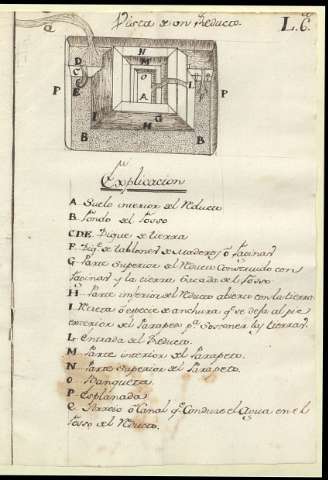 Vista de un Reducto.
L. 6.
a
D
C
E
P
H
N
M
O
A
L
P
I
G
M
B
H
B
Explicacion
A Suelo interior del Reducto
B. fondo del fosso
CDE. Dique de tierra
F. Diq.e de tablones de maderos ò faginas
G Parte Superior del Reducto Construido con
faginas y la tierra sacada del fosso
H. Parte inferior del Reducto abierto con la tierra
I. ò especie de anchura q.e se deja al pie
exterior del Parapeto p.a sostener las tierras.
L. entrada del Reducto.
M. Parte interior del Parapeto.
N. Parte superior del Parapeto.
O Banqueta.
P Esplanada
Q ò Canal q.e Conduze el Agua en el
fosso del Reducto.